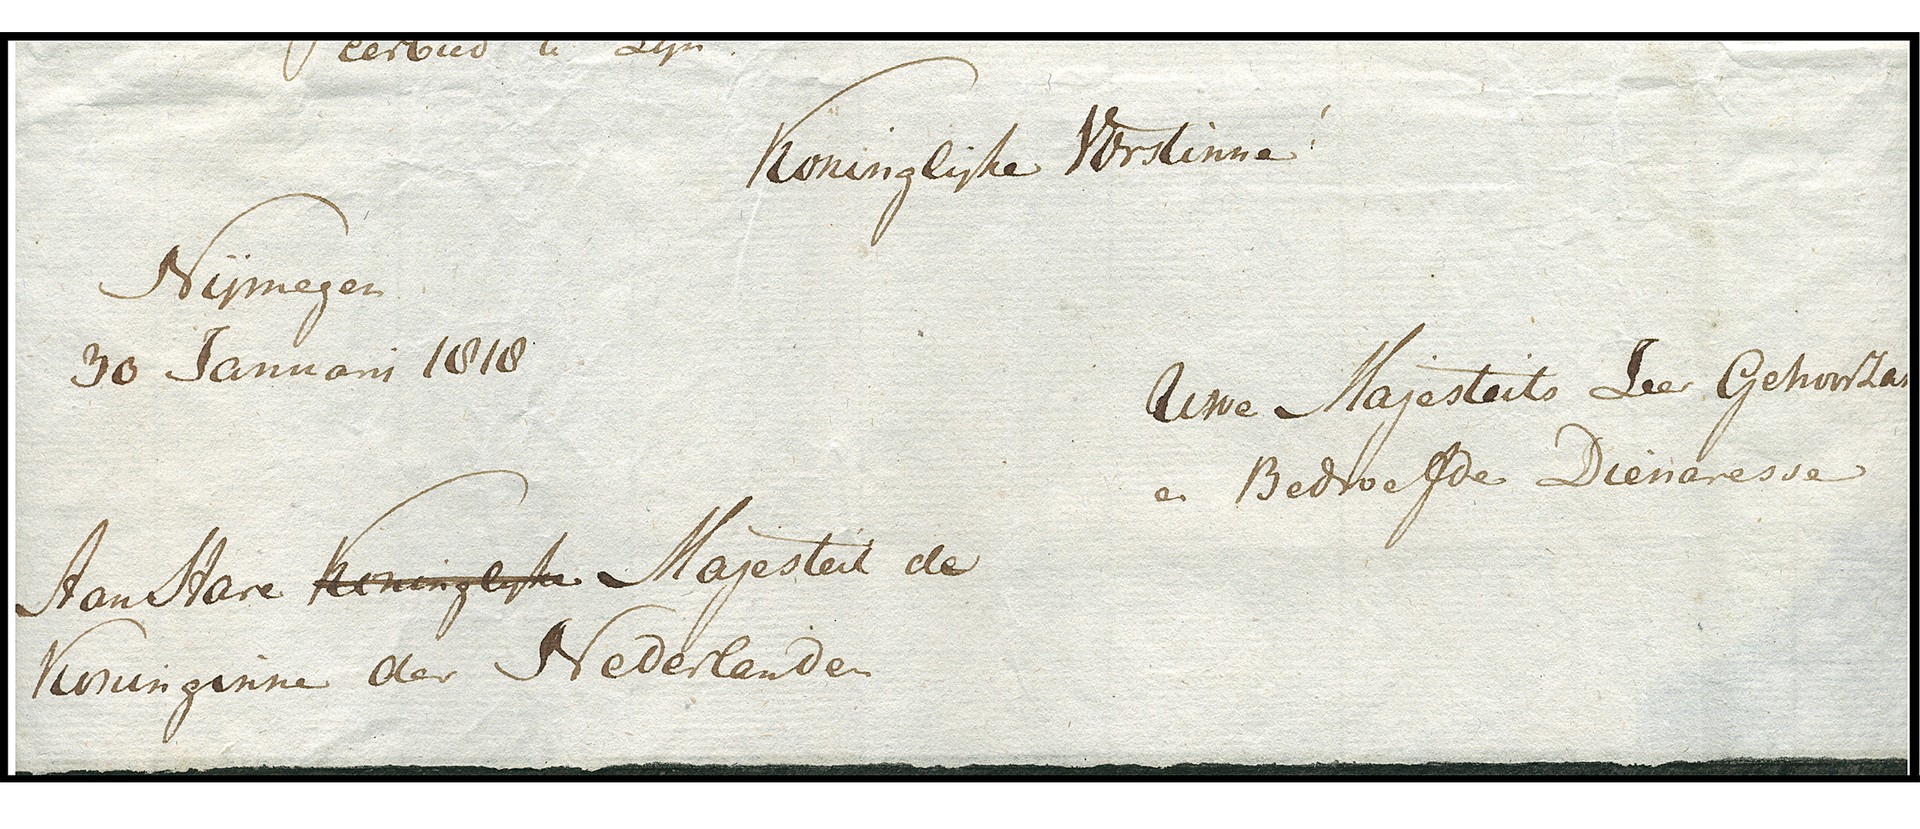 eerbied te Zijn.
Koninglijke Vorstinne!
Nijmegen
30 Januari 1818
Uwe Majesteits Zeer Gehoorza
en Bedroefde Dienaresse
Aan Hare Koninglijke Majesteit de
Koninginne der Nederlanden